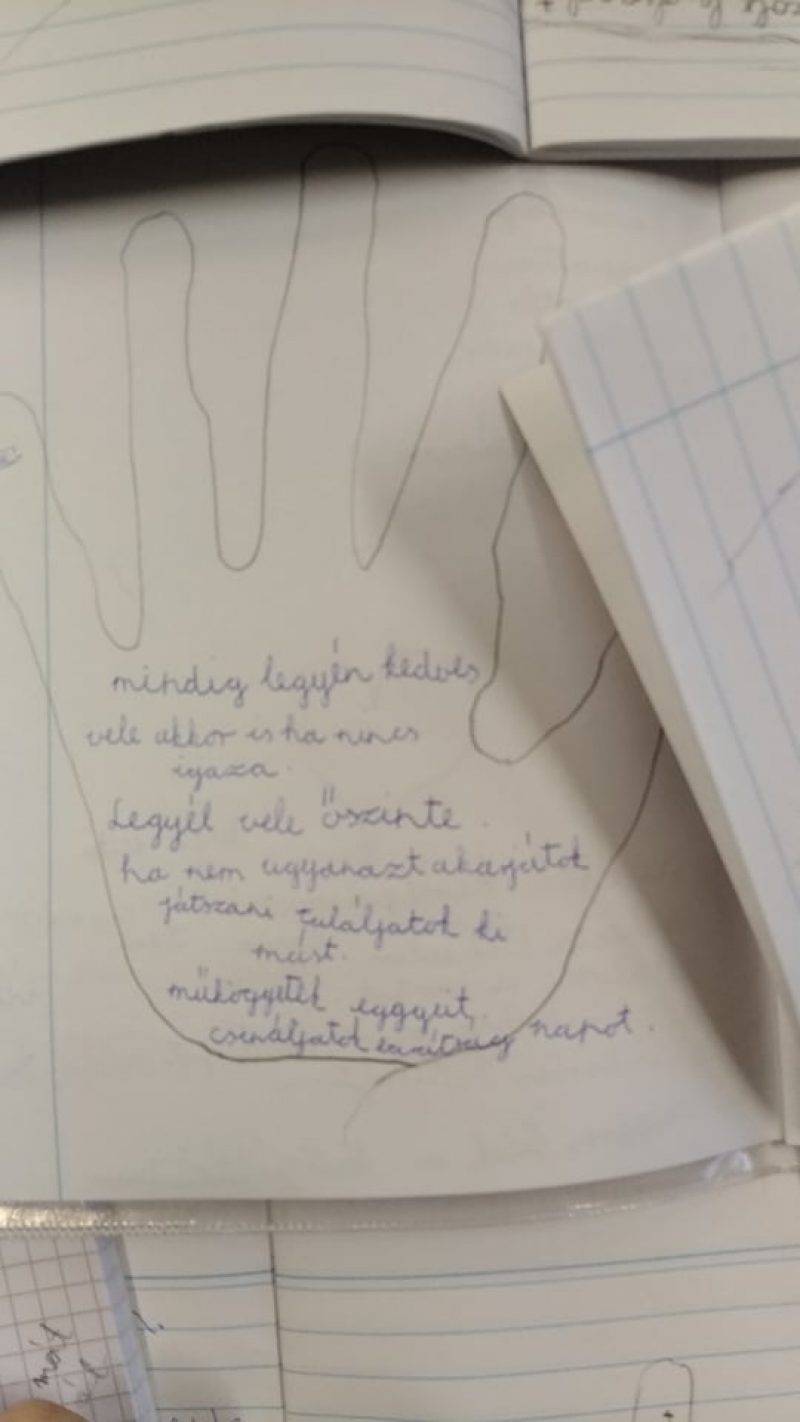 mindig legyén kedves
vele akkor is ha nincs
igaza.
Legyél vele őszinte.
ha nem ugyanazt akarjátok
játszani találjatok ki
mást.
műkögyetek eggyüt,
csináljatok barátság napot.